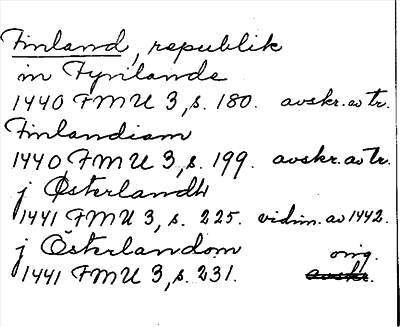 Finland, republik
in Fynlande
1440 FMU 3, s. 180. avskr. av tr.
Finlandiam
1440 FMU 3, s. 199. avskr. av tr.
j Østerlandh
1441 FMU 3, s. 225. vidim. av 1442.
j Österlandom orig.
1441 FMU 3, s. 231. avskr.